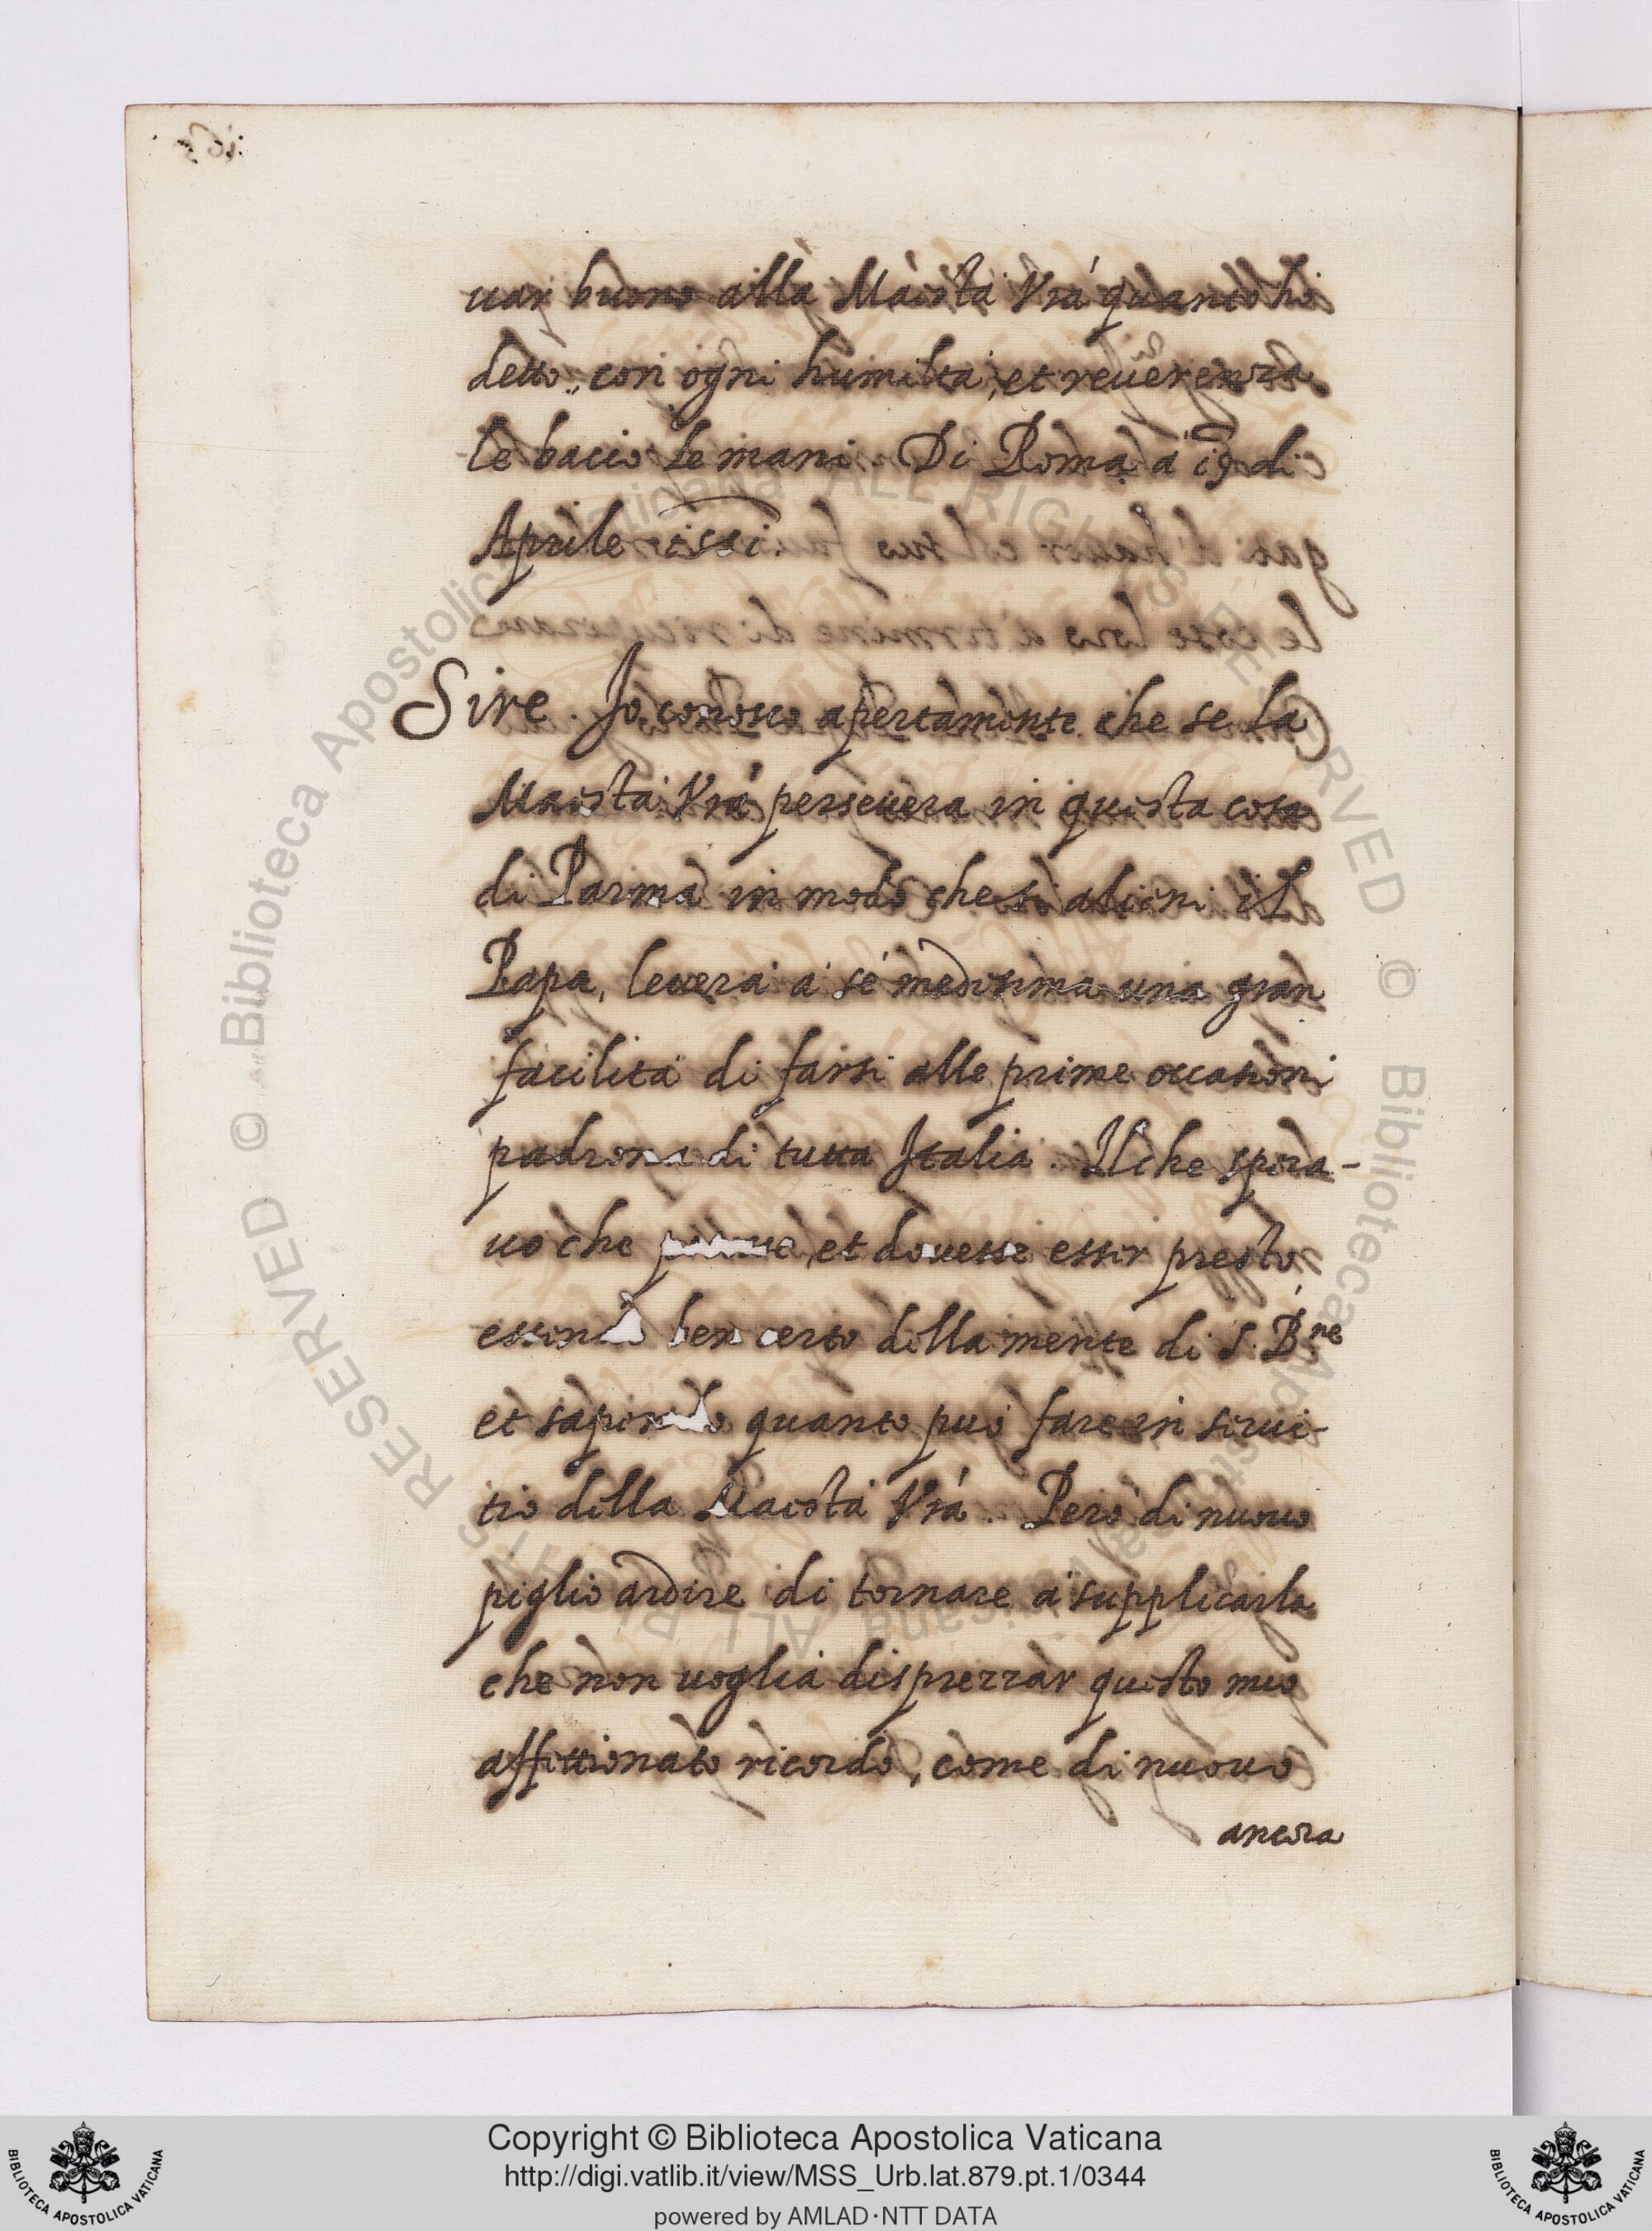 uar buono alla Maestà Vrà quanto hò
detto, con ogni humiltà, et reuerenza
le bacio le mani. Di Roma à 19 di
Aprile 1551.
Sire. Jo conosco apertamente che se la
Maestà Vrà perseuera in questa cosa
di Parma in modo che si alieni il
Papa, leuerà à sé medesima una gran
facilità di farsi alle prime occasioni
padrona di tutta Jtalia. Il che spera-
uo che potesse, et douesse esser presto,
essendo ben certo della mente di S. B.ne
et sapendo quanto può fare in serui-
tio della Maestà Vrà. Però di nuouo
piglio ardire di tornare à supplicarla
che non uoglia disprezzar questo mio
affettionato ricordo, come di nuouo
ancora
Copyright © Biblioteca Apostolica Vaticana
http://digi.vatlib.it/view/MSS_Urb.lat.879.pt.1/0344
powered by AMLAD·NTT DATA
BIBLIOTECA APOSTOLICA VATICANA
BIBLIOTECA APOSTOLICA VATICANA
© Biblioteca Apostolica Vaticana ALL RIGHTS RESERVED
© Biblioteca Apostolica Vaticana ALL RIGHTS RESERVED